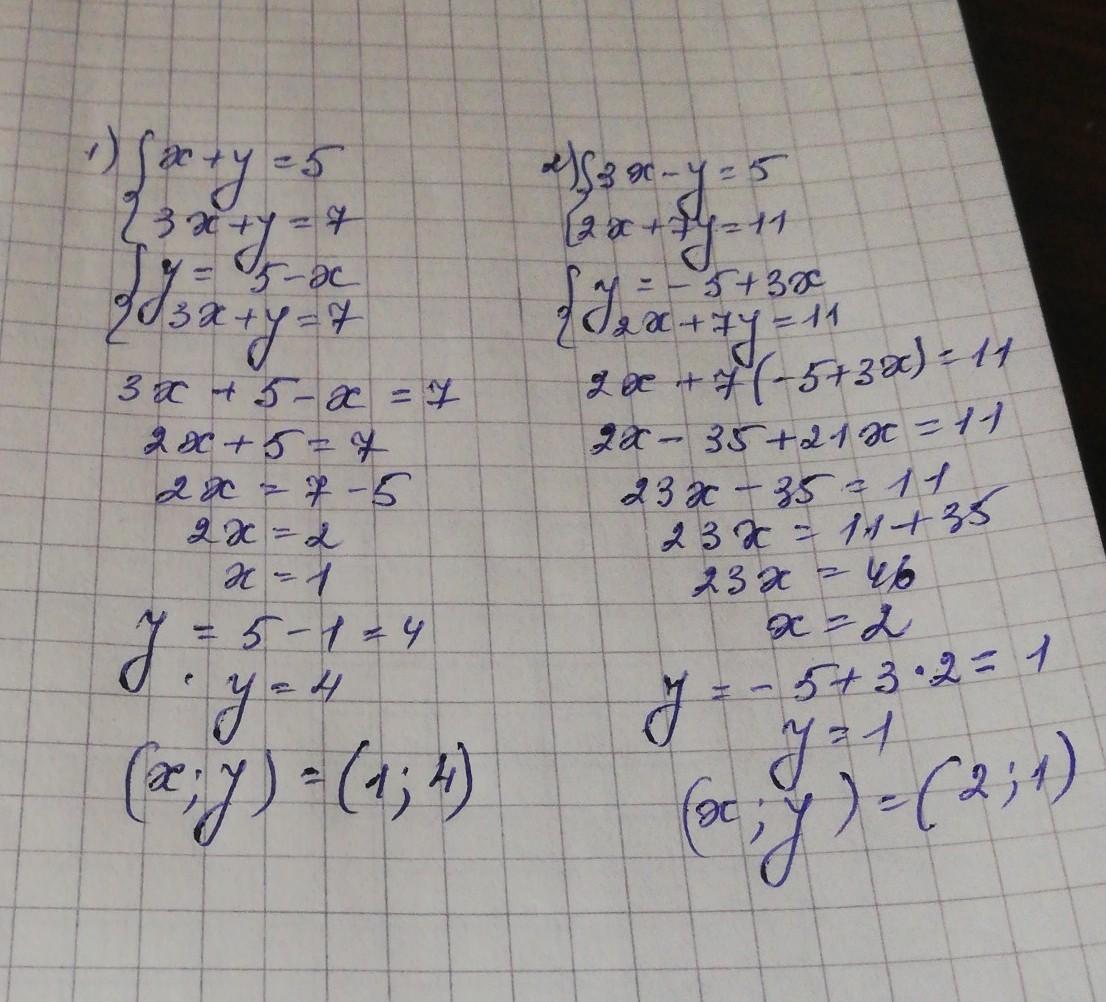 1) { x + y = 5
3x + y = 7
{ y = 5 - x
3x + y = 7
3x + 5 - x = 7
2x + 5 = 7
2x = 7 - 5
2x = 2
x = 1
y = 5 - 1 = 4
y = 4
(x; y) = (1; 4)
2) { 3x - y = 5
2x + 7y = 11
{ y = - 5 + 3x
2x + 7y = 11
2x + 7(-5+3x) = 11
2x - 35 + 21x = 11
23x - 35 = 11
23x = 11 + 35
23x = 46
x = 2
y = - 5 + 3 · 2 = 1
y = 1
(x; y) = (2; 1)